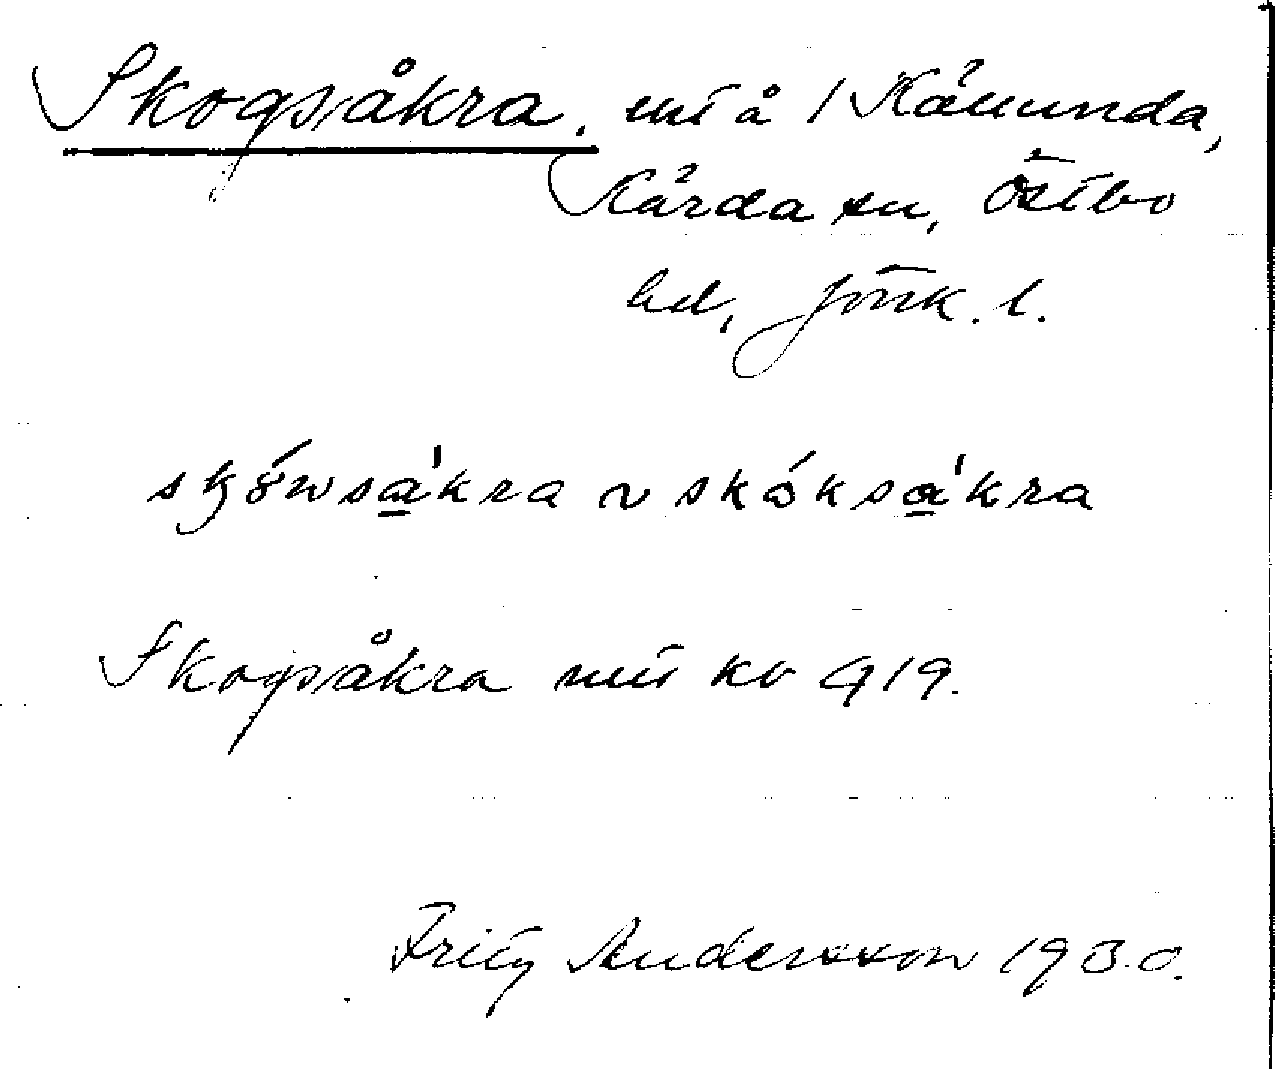 Skogsåkra. mt å 1 Kånunda,
Kärda sn, Östbo
hd, Jönk. l.
skówsa̲'kra ~ skóksa̲'kra
Skogsåkra mt kv 919.
Fritz Andersson 1930.